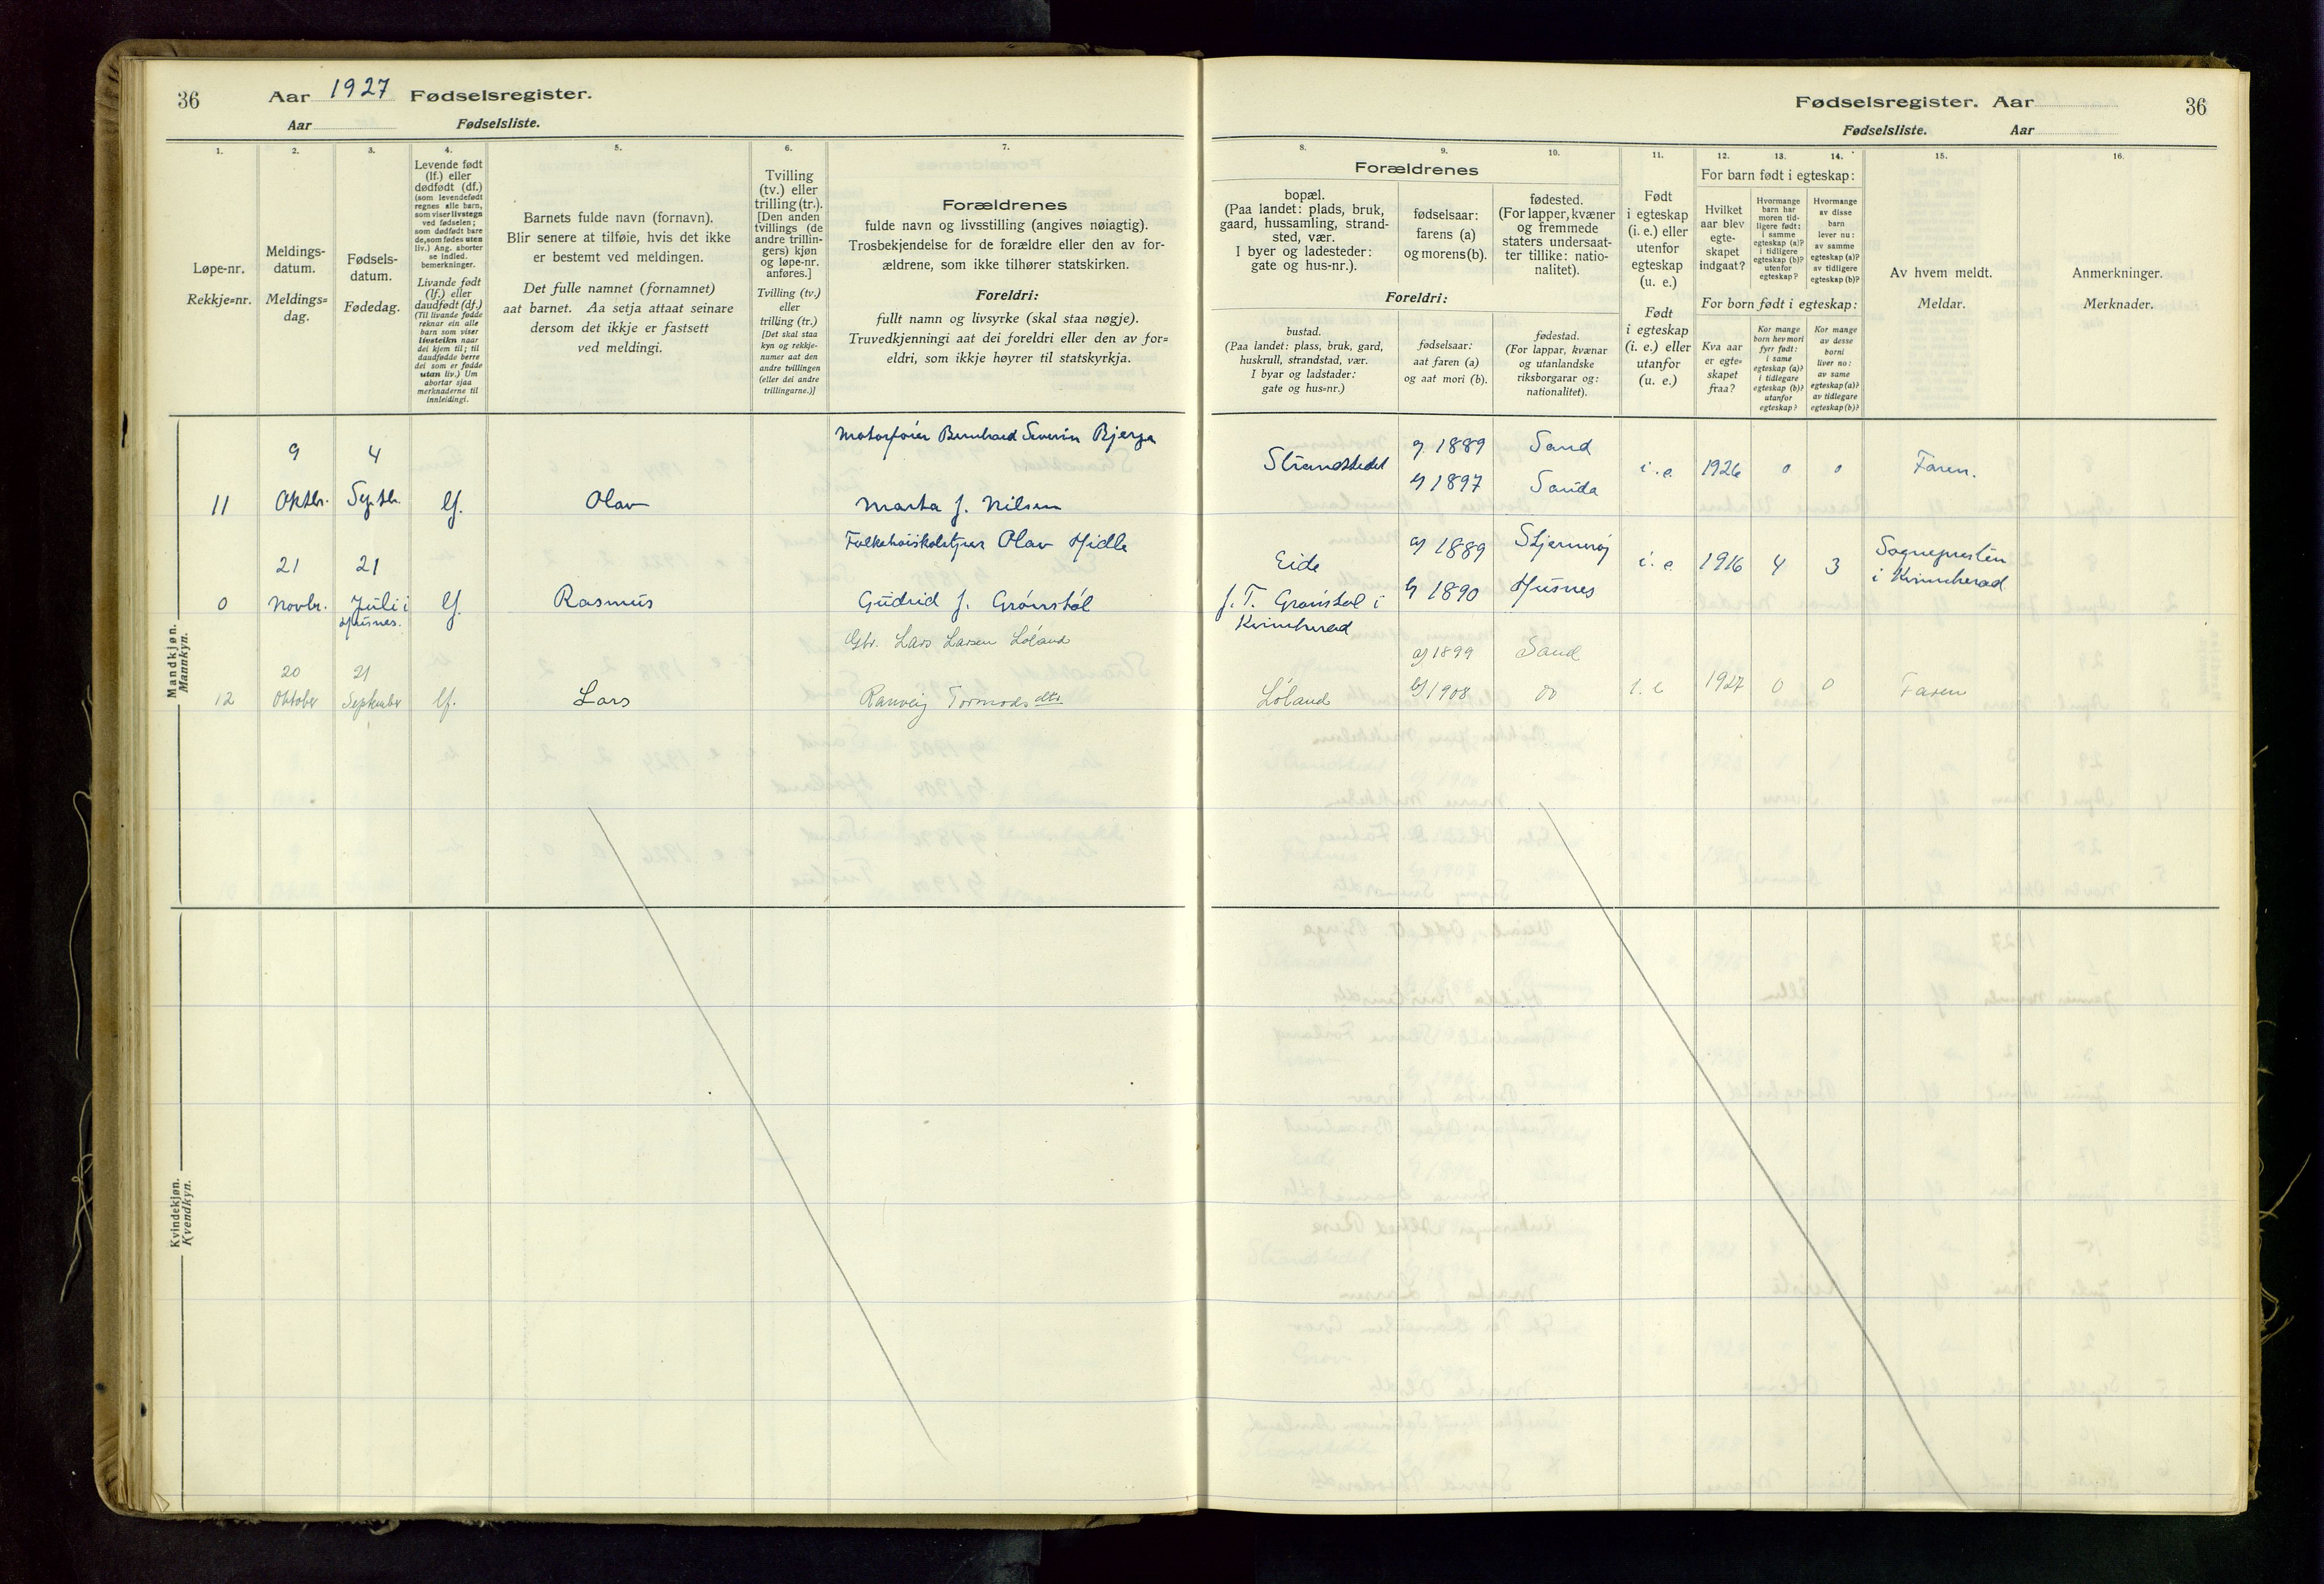 36
Aar 1927 Fødselsregister.
Aar Fødselsliste.
1.
2.
3.
4.
5.
6.
7.
Løpe-nr.
Rekkje-nr.
Meldings-
datum.
Meldings-
dag.
Fødsels-
datum.
Fødedag.
Levende født
(lf.) eller
dødfødt (df.)
(som levendefødt
regnes alle barn,
som viser livstegn
ved fødselen;
som dødfødt bare
de, som fødes uten
liv.) Ang. aborter
se indled.
bemerkninger.
Livande født
(lf.) eller
daudfødt (df.)
(Til livande fødde
reknar ein alle
born som viser
livsteikn naar
dei kjem til; til
daudfødde berre
dei som er fødde
utan liv.) Um
abortar sjaa
merknaderne til
innleidingi.
Barnets fulde navn (fornavn).
Blir senere at tilføie, hvis det ikke
er bestemt ved meldingen.
Det fulle namnet (fornamnet)
aat barnet. Aa setja attaat seinare
dersom det ikkje er fastsett
ved meldingi.
Tvilling
(tv.) eller
trilling (tr.).
[Den anden
tvillings (de
andre trillin-
gers) kjøn
og løpe-nr.
anføres.]
Tvilling (tv.)
eller
trilling (tr.)
[Det skal staa
kyn og rekkje-
numer aat den
andre tvillingen
(eller dei andre
trillingarne.)]
Forældrenes
fulde navn og livsstilling (angives nøiagtig).
Trosbekjendelse for de forældre eller den av for-
ældrene, som ikke tilhører statskirken.
Foreldri:
fullt namn og livsyrke (skal staa nøgje).
Truvedkjenningi aat dei foreldri eller den av for-
eldri, som ikkje høyrer til statskyrkja.
Mandkjøn.
Mannkyn.
Motorfører Bernhard Severin Bjerga
9 4
11 Oktbr. Septbr. lf. Olav Marta f. Nilsen
Folkehøiskolestyrer Olav Hidle
21 21
0 Novbr. Juli i lf. Rasmus Gudrid f. Grønstøl
Husnes.
Gbr. Lars Larsen Løland
20 21
12 Oktober September lf. Lars Ranveig Tormodsdtr
Kvindekjøn.
Kvendkyn.
Fødselsregister. Aar 36
Fødselsliste. Aar
8.
9.
10.
11.
12.
13.
14.
15.
16.
Forældrenes
bopæl.
(Paa landet: plads, bruk,
gaard, hussamling, strand-
sted, vær.
I byer og ladesteder:
gate og hus-nr.).
fødselsaar:
farens (a)
og morens (b).
fødested.
(For lapper, kvæner
og fremmede
staters undersaat-
ter tillike: natio-
nalitet).
Foreldri:
bustad.
(Paa landet: plass, bruk, gard,
huskrull, strandstad, vær.
I byar og ladstader:
gate og hus-nr.)
fødselsaar:
aat faren (a)
og aat mori (b).
fødestad.
(For lappar, kvænar
og utanlandske
riksborgarar og:
nationalitet).
Født
i egteskap
(i. e.) eller
utenfor
egteskap
(u. e.)
Født
i egteskap
(i. e.) eller
utanfor
(u. e.)
For barn født i egteskap:
Hvilket
aar blev
egte-
skapet
indgaat?
Hvormange
barn har
moren tid-
ligere født:
i samme
egteskap (a)?
i tidligere
egteskap (b)?
utenfor
egteskap?
Hvormange
av disse
barn
lever nu:
av samme
egteskap (a)?
av tidligere
egteskap (b)?
For born født i egteskap:
Kva aar
er egte-
skapet
fraa?
Kor mange
born hev mori
fyrr født:
i same
egteskap (a)?
i tidlegare
egteskap (b)?
utanfor
egteskap?
Kor mange
av desse
borni
liver no:
av same
egteskap (a)?
av tidlegare
egteskap (b)?
Av hvem meldt.
Meldar.
Anmerkninger.
Merknader.
a) 1889 Sand
Strandstedet i. e. 1926 0 0 Faren.
b) 1897 Sauda
a) 1889 Stjernerøj
Eide i. e. 1916 4 3 Sognepresten
i Kvinnherad
f. T. Grønstøl i b) 1890 Husnes
Kvinnherad
a) 1899 Sand
Løland b) 1908 do i. e. 1927 0 0 Faren